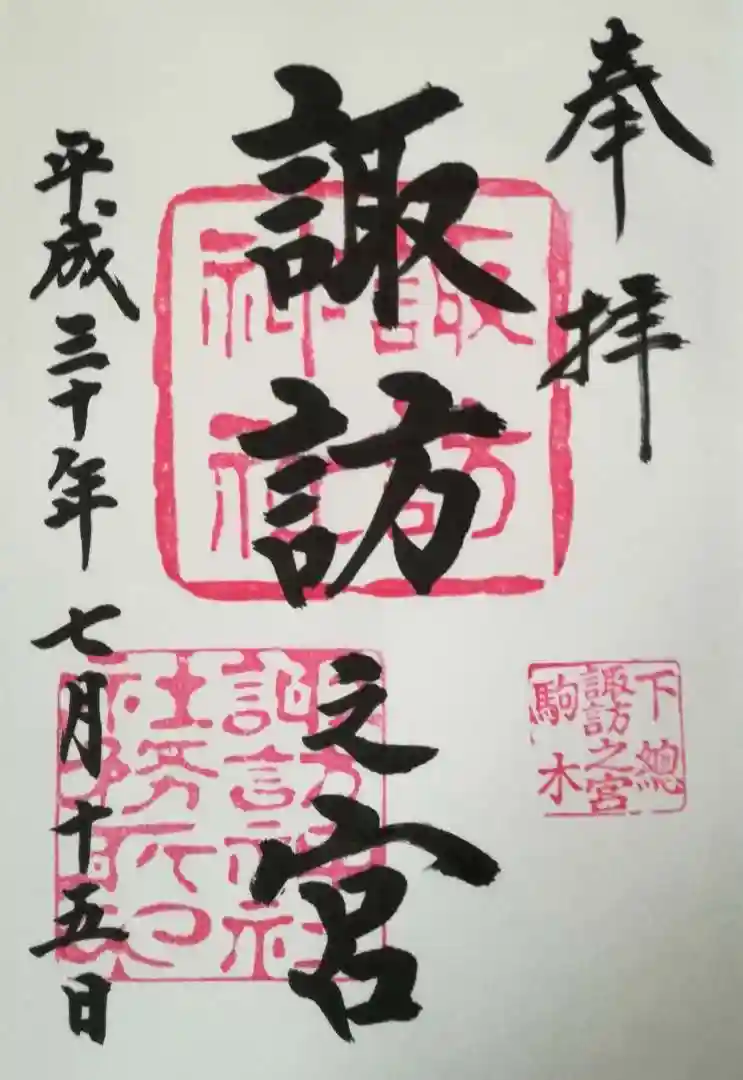 奉拝
諏訪之宮
平成三十年七月十五日
諏訪神社
下總
諏訪之宮
駒木